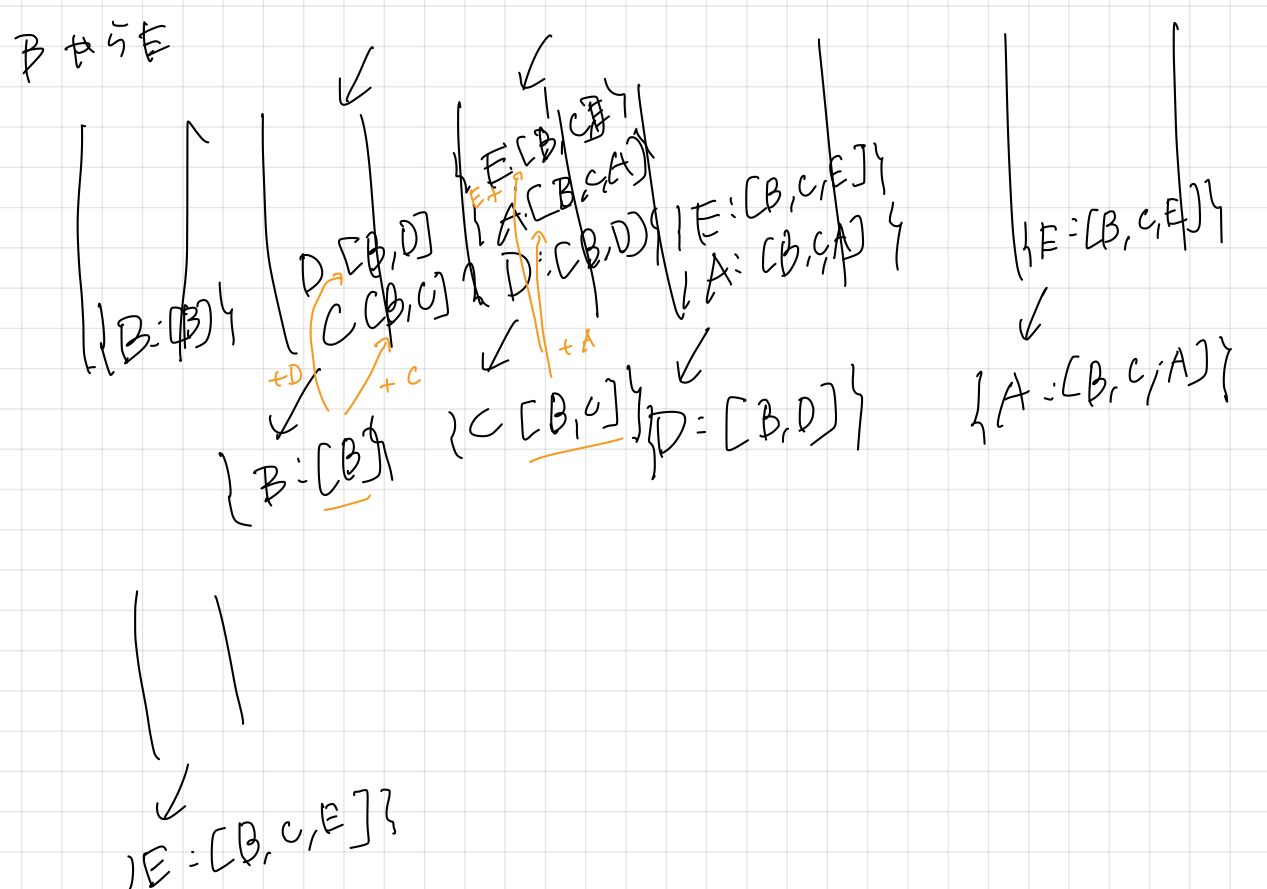 BからE
{B:[B]}
D [B,D]
C [B,C]
+D
+C
{B:[B]}
E[B,C
E+
{A[B,C,A]
{D:[B,D]}
+A
{C [B,C]}
{E:[B,C,E]}
{A:[B,C,A]}
{D:[B,D]}
{E:[B,C,E]}
{A:[B,C,A]}
{E:[B,C,E]}